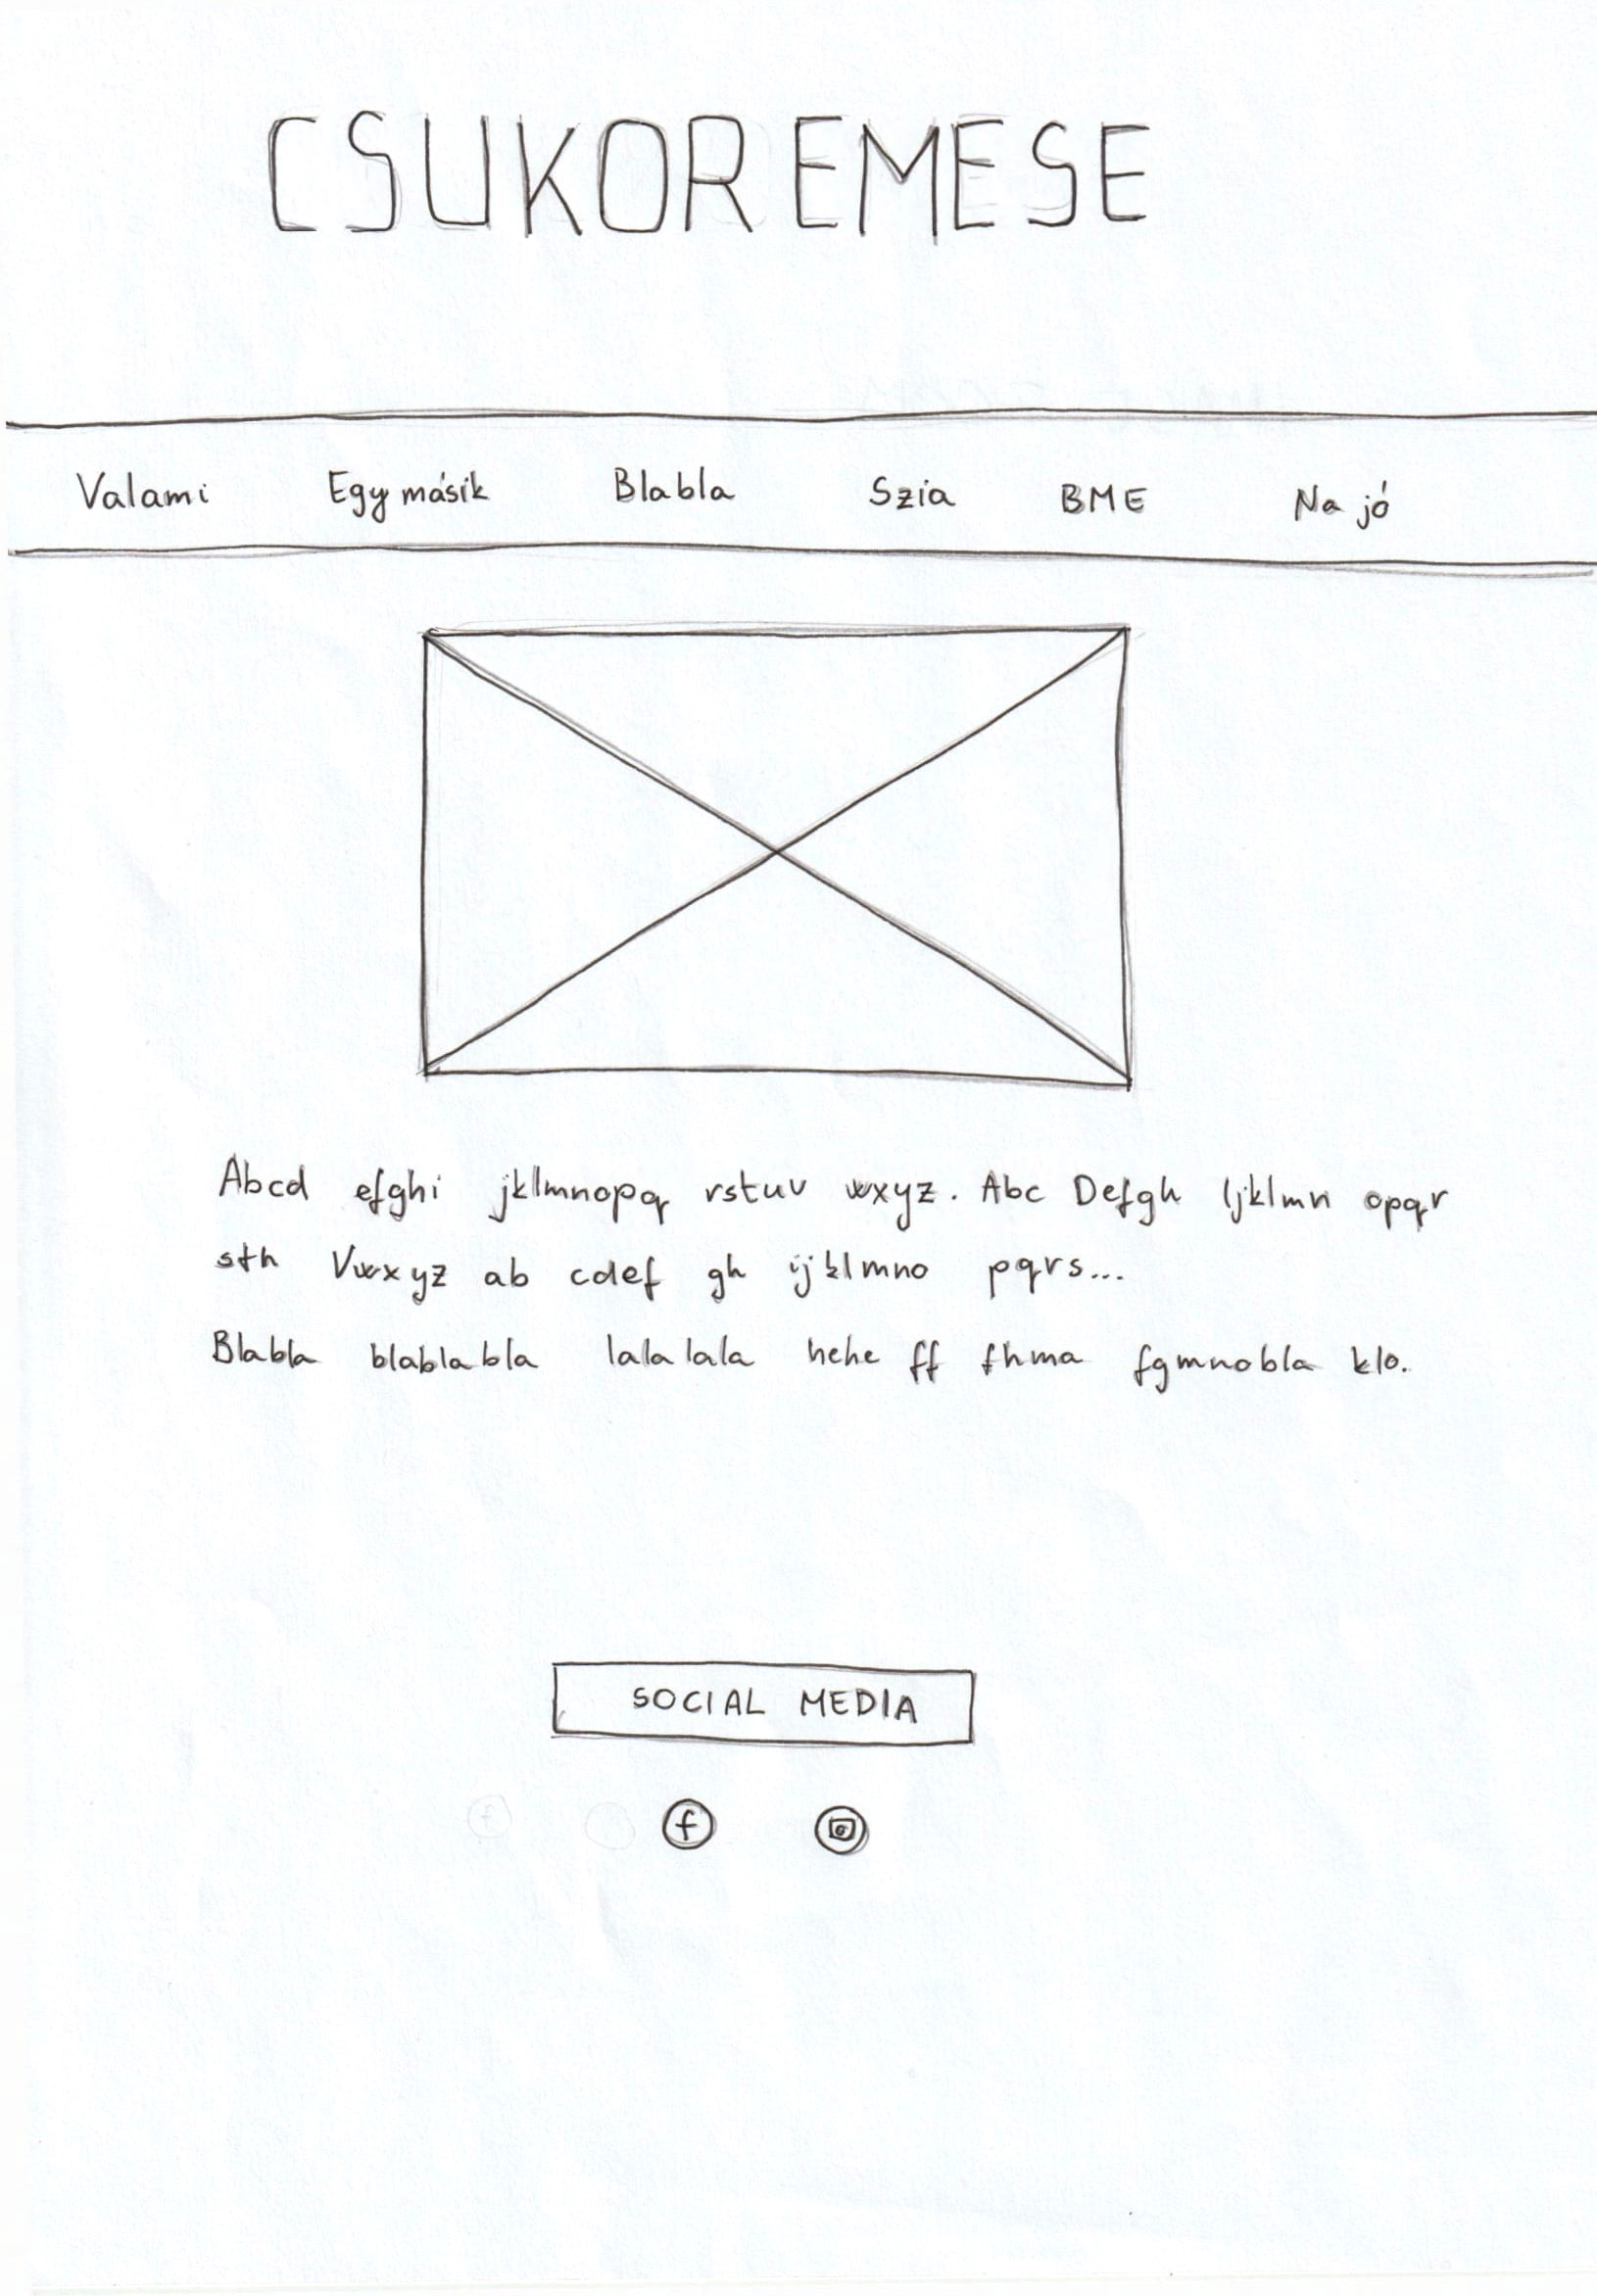 CSUKOR EMESE
Valami Egy másik Blabla Szia BME Na jó
Abcd efghi jklmnopq rstuv wxyz. Abc Defgh Ijklmn opqr
sth Vwxyz ab cdef gh ijklmno pqrs...
Blabla blablabla lalalala hehe ff fhma fgmnobla klo.
SOCIAL MEDIA
f